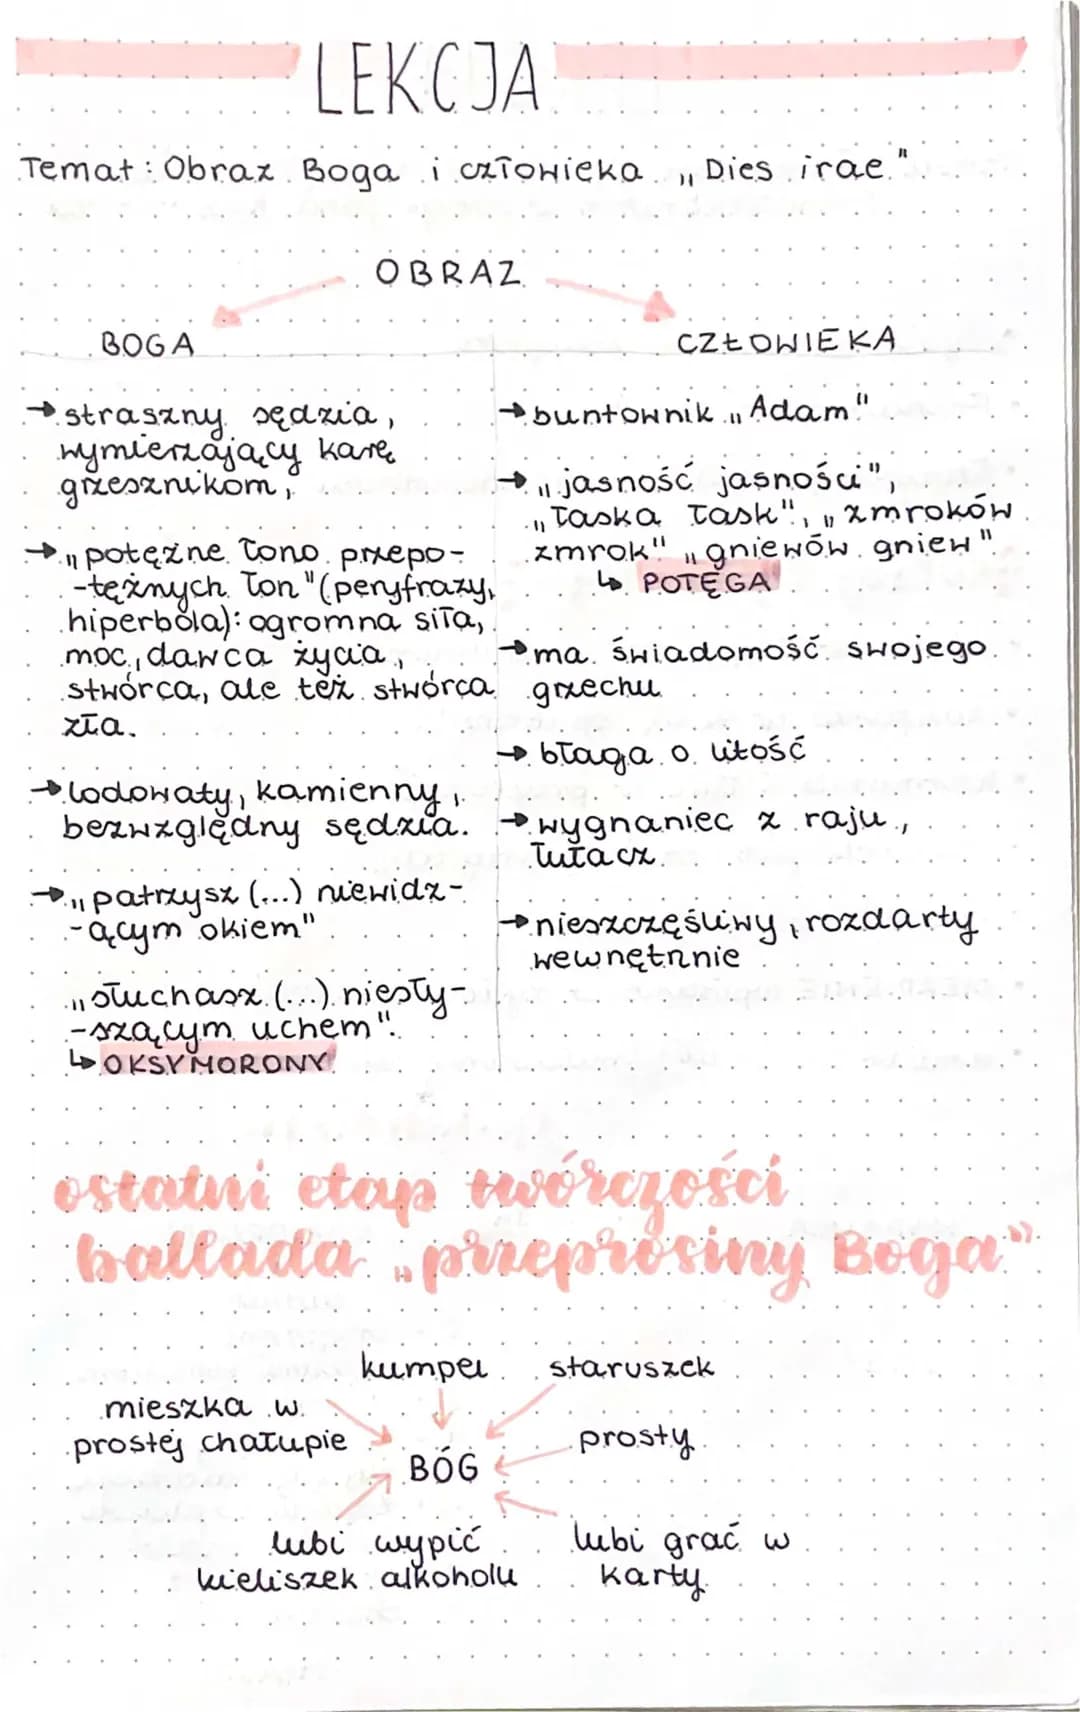 LEKCJA
Temat: Obraz Boga i człowieka „Dies irae".
OBRAZ
BOGA
→ straszny sędzia,
wymierzający karę
grzesznikom,
→ „potężne łono przepo-
-tężnych łon" (peryfrazy,
hiperbola): ogromna siła,
moc, dawca życia,
stwórca, ale też stwórca
zła.
→ lodowaty, kamienny,
bezwzględny sędzia.
→ „patrzysz (...) niewidz-
-ącym okiem"
„słuchasz (...) niesły-
-szącym uchem".
↳ OKSYMORONY
CZŁOWIEKA
→ buntownik „Adam"
→ „jasność jasności",
„łaska łask", „zmroków
zmrok" „gniewów gniew"
↳ POTĘGA
→ ma świadomość swojego
grzechu
→ błaga o litość
→ wygnaniec z raju,
tułacz
→ nieszczęśliwy, rozdarty
wewnętrznie
ostatni etap twórczości
ballada „przeprosiny Boga"
kumpel staruszek
mieszka w
prostej chałupie
prosty
BÓG
lubi wypić
kieliszek alkoholu
lubi grać w
karty.